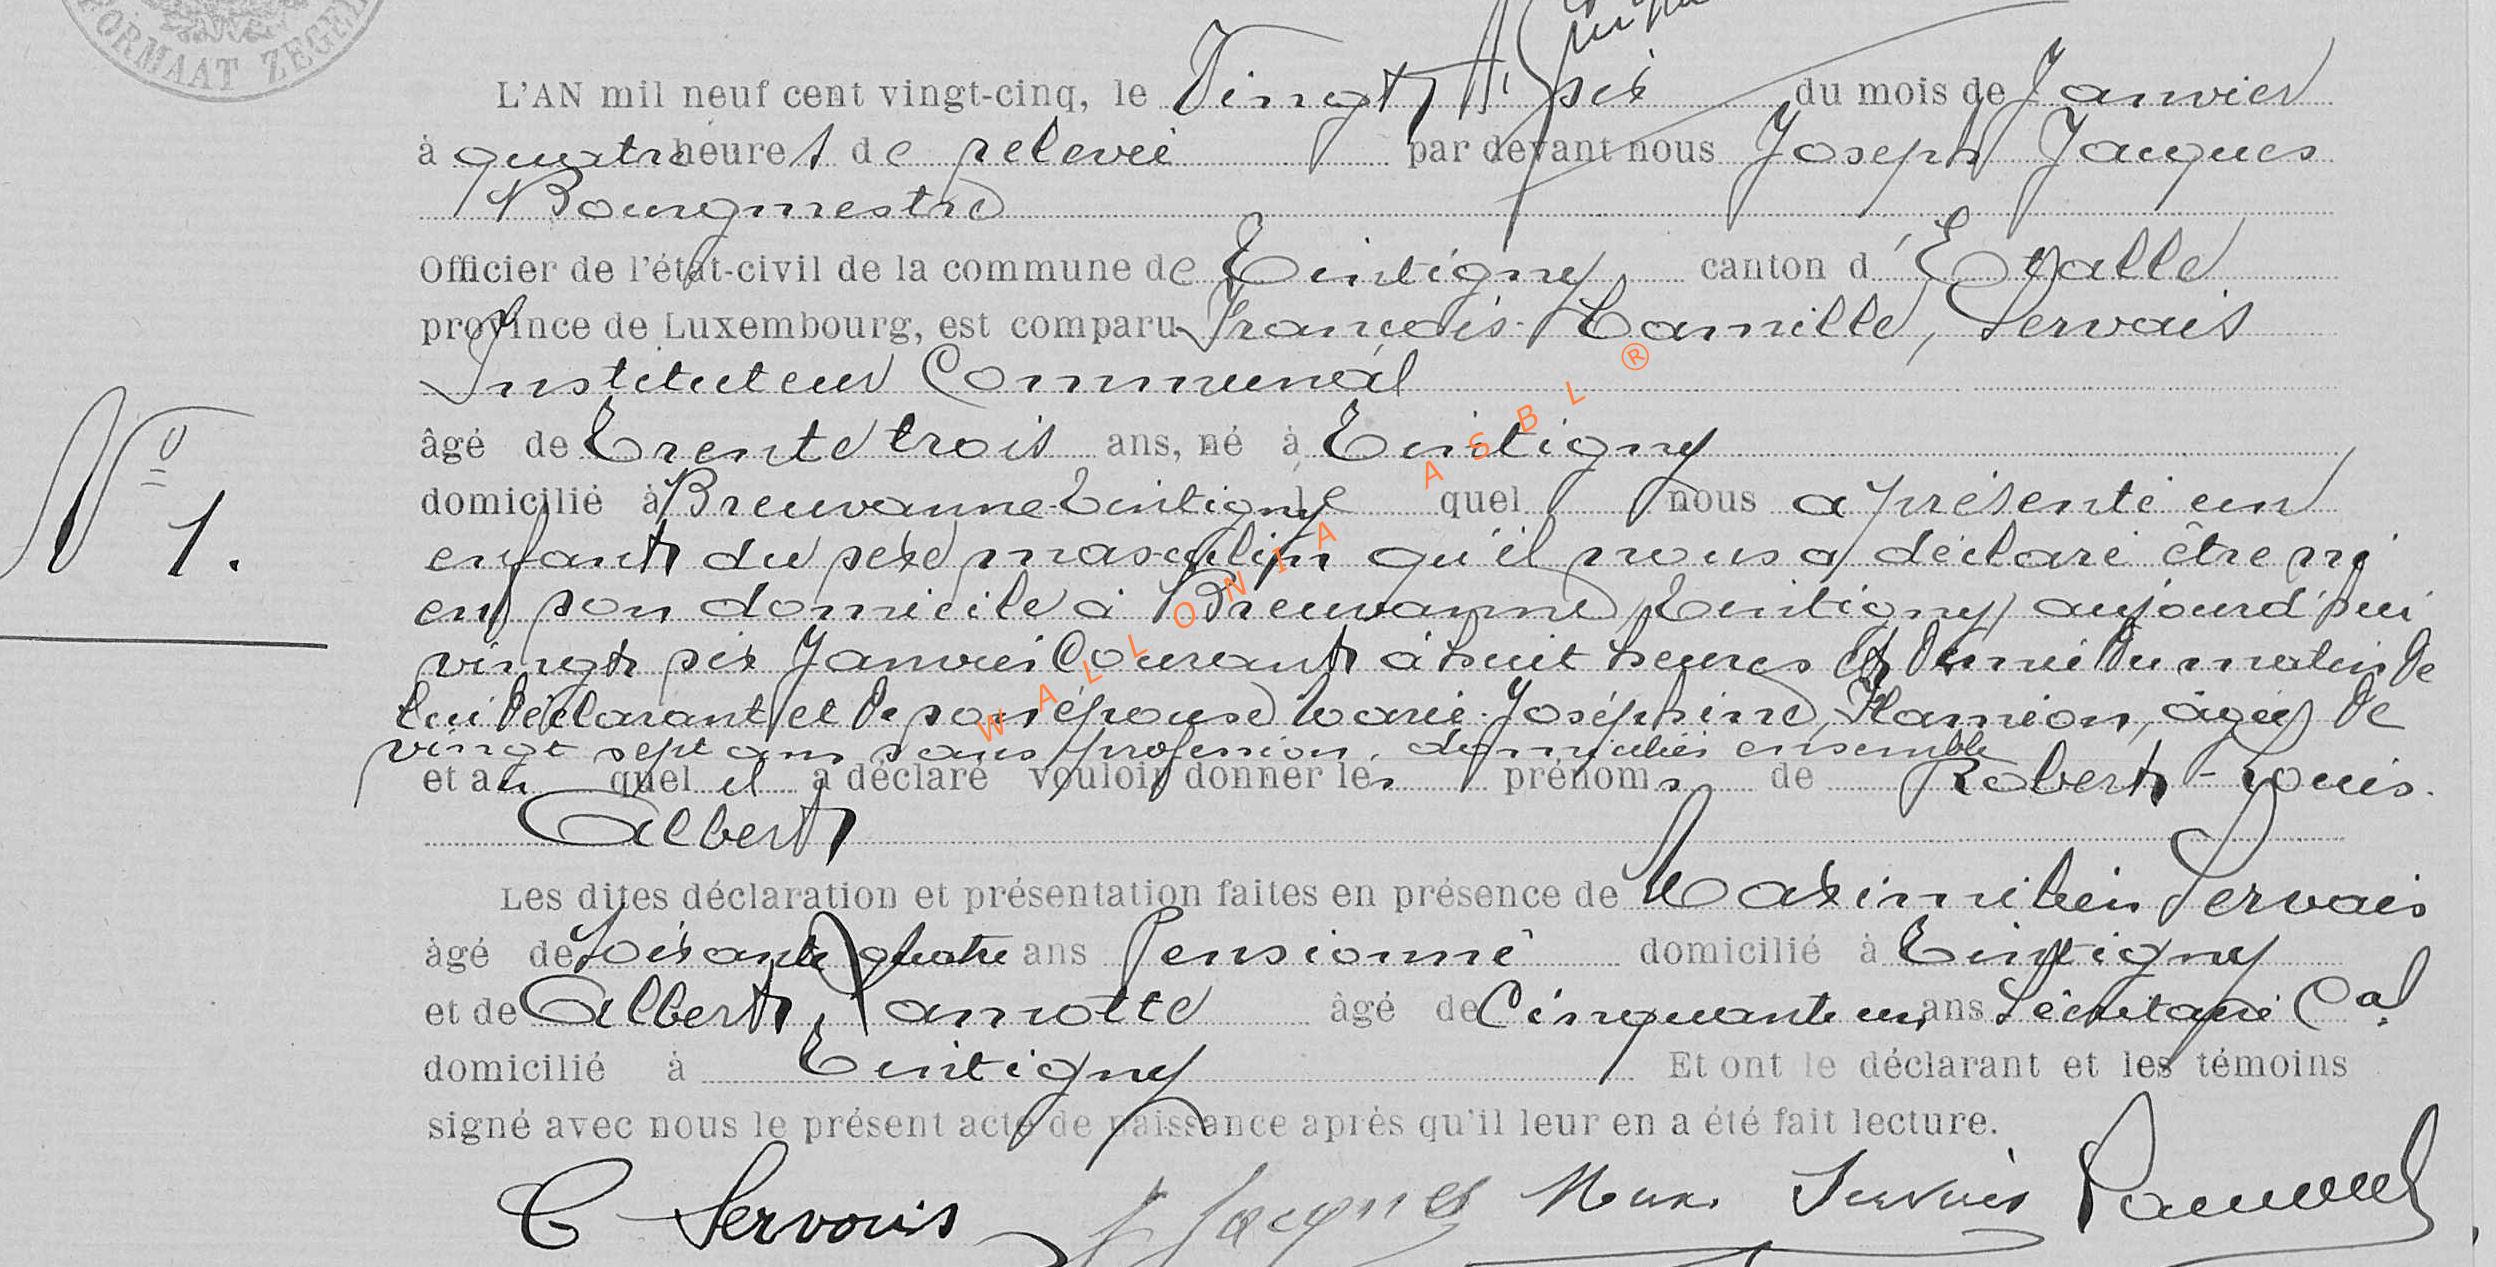 FORMAAT ZEGEL
L'AN mil neuf cent vingt-cinq, le Vingt six du mois de Janvier
à quatre heures de relevée par devant nous Joseph Jacques
Bourgmestre
Officier de l'état-civil de la commune de Tintigny canton d'Etalle
province de Luxembourg, est comparu François-Camille, Servais
Instituteur Communal
âgé de Trente trois ans, né à Tintigny
domicilié à Breuvanne-Tintigny le quel nous a présenté un
N° 1.
enfant du sexe masculin qu'il nous a déclaré être né
en son domicile à Breuvanne, Tintigny, aujourd'hui
vingt six Janvier Courant à huit heures et demie du matin de
lui déclarant et de son épouse Marie-Joséphine, Flamion, âgée de
vingt sept ans sans profession, domiciliés ensemble
et au quel il a déclaré vouloir donner les prénoms de Robert-Louis-
Albert
Les dites déclaration et présentation faites en présence de Maximilien Servais
âgé de Soixante quatre ans Pensionné domicilié à Tintigny
et de Albert, Lamotte âgé de Cinquante un ans Secrétaire Cal
domicilié à Tintigny Et ont le déclarant et les témoins
signé avec nous le présent acte de naissance après qu'il leur en a été fait lecture.
C Servais J Jacques Max. Servais
WALLONIA ASBL ®